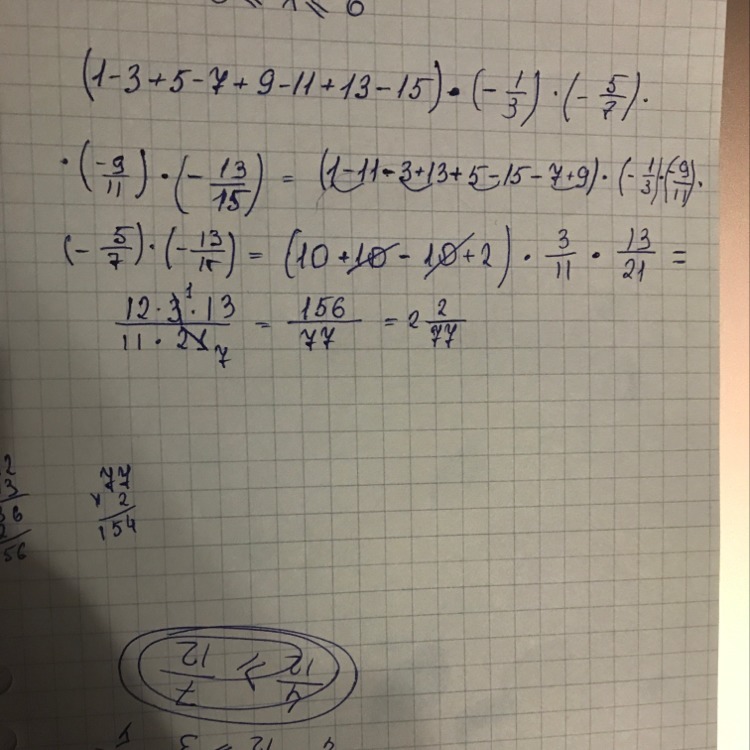 (1-3+5-7+9-11+13-15)·(-1/3)·(-5/7)·
·(-9/11)·(-13/15) = (1-11-3+13+5-15-7+9)·(-1/3)·(-9/11)·
(-5/7)·(-13/15) = (10+10-10+2)·3/11·13/21 =
12·3·13/11·21 = 156/77 = 2 2/77
1
7
77
× 2
154
56
4/12 ≥ 7/12